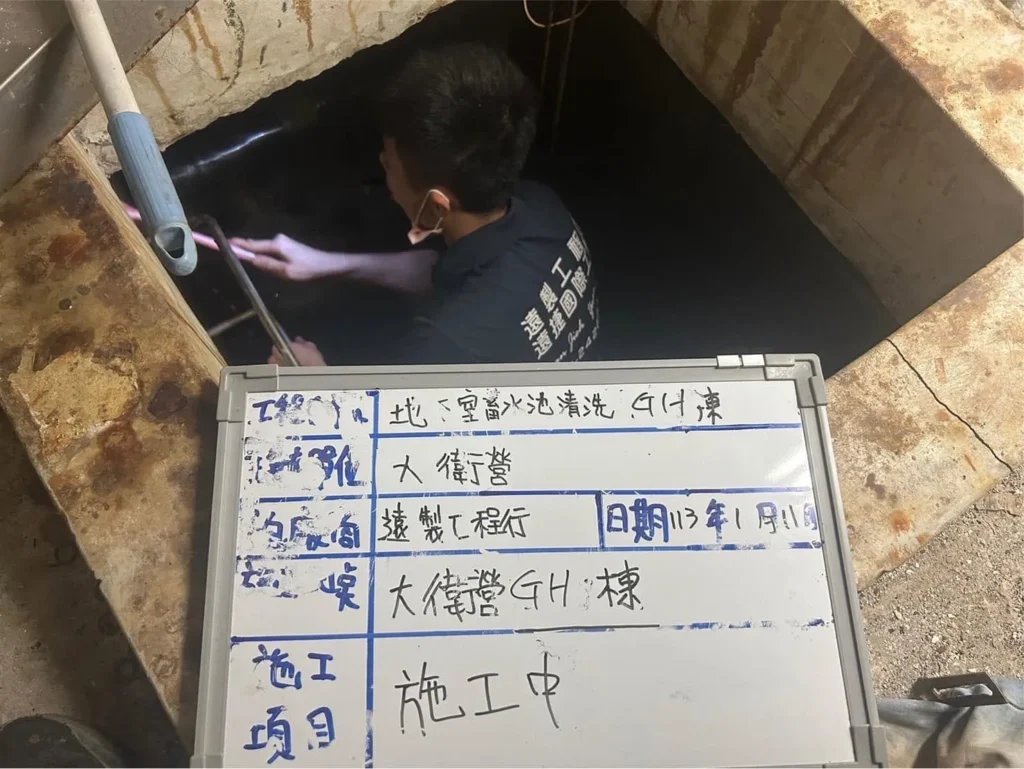 遠製工
遠護國際
工程
地 室蓄水池清洗 GH棟
大衛營
商
遠製工程行
日期113年1月11日
大衛營GH棟
施工
項目
施工中